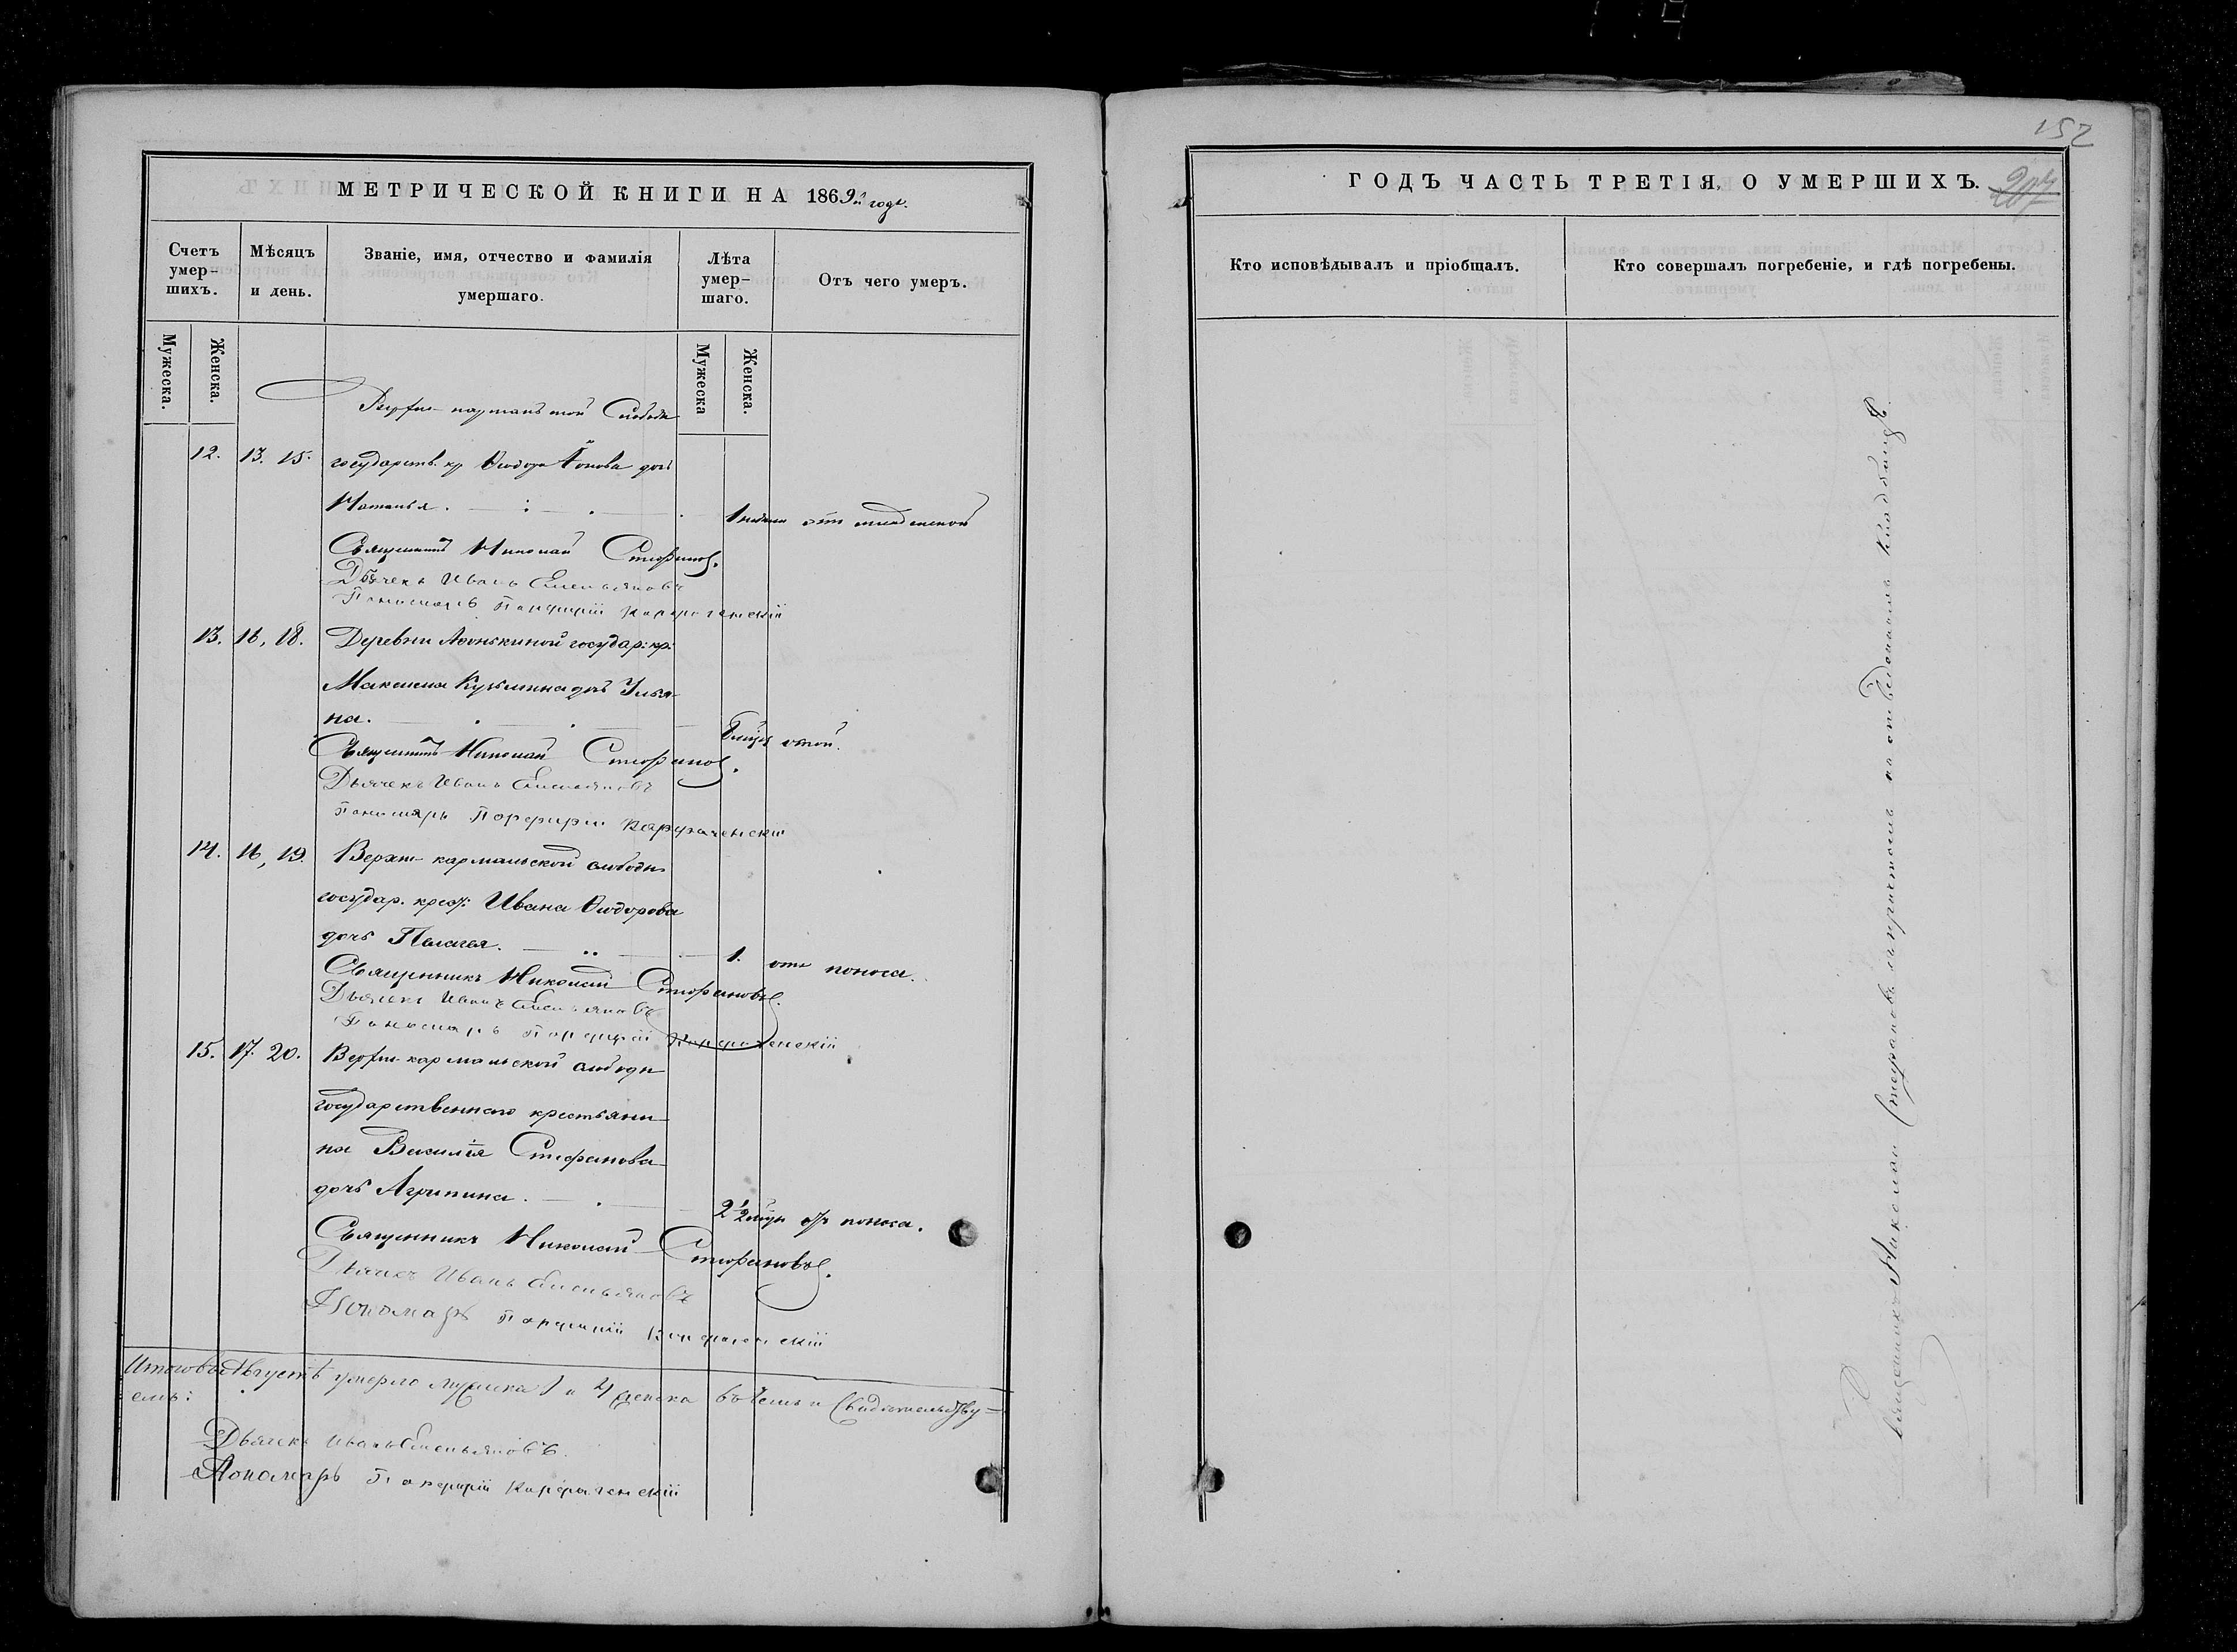 МЕТРИЧЕСКОЙ КНИГИ НА 1869й годъ.
Счетъ умер-шихъ.
Мѣсяцъ и день.
Званіе, имя, отчество и фамилія умершаго.
Лѣта умер-шаго.
Отъ чего умеръ.
Мужеска.
Женска.
Мужеска
Женска.
Верхне- кармальской Слободы
12. 13. 15. государств. кр Ѳеодора дочь
Наталья. 1 недели отъ младенской
Священникъ Николай Стефановъ.
Дьячекъ Иванъ Емельяновъ
Пономарь Порфирій Карфагенскій
13. 16, 18. Деревни Афонькиной государ: кр:
Максима Кузьмина дочь Улья-
на.
Священникъ Николай Стефановъ.
Дьячекъ Иванъ Емельяновъ
Пономарь Порфирій Карфагенскій
14. 16, 19. Верхне- кармальской слободы
государ. крест: Ивана Ѳеодорова
дочь Пелагея. 1. отъ поноса.
Священникъ Николай Стефановъ.
Дьячекъ Иванъ Емельяновъ
Пономарь Порфирій Карфагенскій
15. 17. 20. Верхне- кармальской слободы
государственнаго крестьяни-
на Василія Стефанова
дочь Агрипина. 2 1/2 отъ поноса.
Священникъ Николай Стефановъ.
Дьячекъ Иванъ Емельяновъ
Пономарь Порфирій Карфагенскій
Итого въ Августѣ умерло мужеска 1 и 4 женска въ чемъ и свидѣтельству=
емъ:
Дьячекъ Иванъ Емельяновъ.
Пономарь Порфирій Карфагенскій
152
ГОДЪ ЧАСТЬ ТРЕТІЯ, О УМЕРШИХЪ. 207
Кто исповѣдывалъ и пріобщалъ.
Кто совершалъ погребеніе, и гдѣ погребены.
Священникъ Николай Стефановъ съ причтомъ на отведенномъ кладбищѣ.